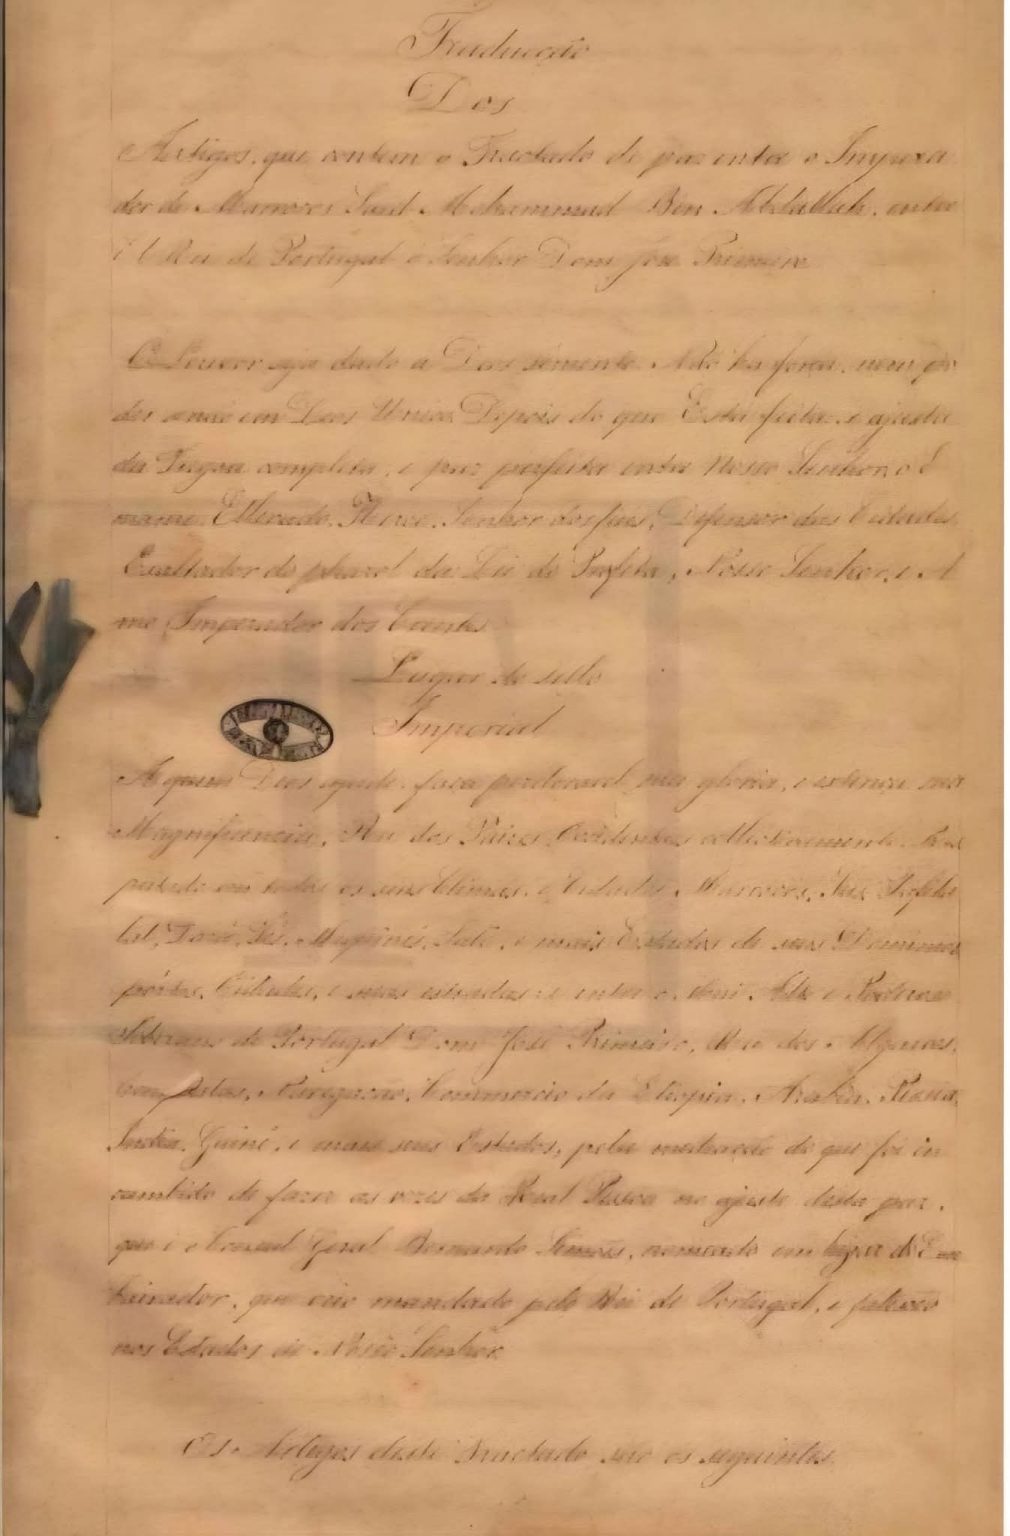 Traducção
Dos
Artigos, que contem o Tractado de paz entre o Impera
dor de Marrocos Mohammed Ben Abdallah, entre
de Portugal o Senhor Dom José Primeiro
O Louvor seja dado a Deos sómente. Não ha força, nem po
der senão em Deos Unico. Depois do que Está feita, e ajusta
da Tregoa completa, e paz perfeita entre Nosso Senhor, o I
mamo, Elevado, Senhor dos fieis, Defensor dos Estados,
Exaltador do pharol da Lei do Profeta, Nosso Senhor, e A
mo Imperador dos Crentes
Lugar do sello
Imperial
A quem Deos ajude, faça perduravel sua gloria, e extença sua
Magnificencia, Rei dos Paizes Occidentaes collectivamente. Res
peitado em todos os seus Climas, e Cidades, Marrocos, Fez, Tafile
lat, Mequinés, Salé, e mais Estados de seus Dominios
pórtos, Cidades, e suas estradas: e entre o Alto e Poderoso
Soberano de Portugal Dom José Primeiro, Rei dos Algarves,
Navegação, Commercio da Etiopia, Arabia, Persia,
India, Guiné, e mais seus Estados, pela mediação do que foi in
cumbido de fazer as vezes da Real Pessoa no ajuste desta paz,
que é o Consul Geral Bernardo Simoes, nomeado em lugar do Em
baixador, que veio mandado pelo Rei de Portugal, e faleceo
nos Estados de Nosso Senhor.
Os Artigos deste Tractado são os seguintes